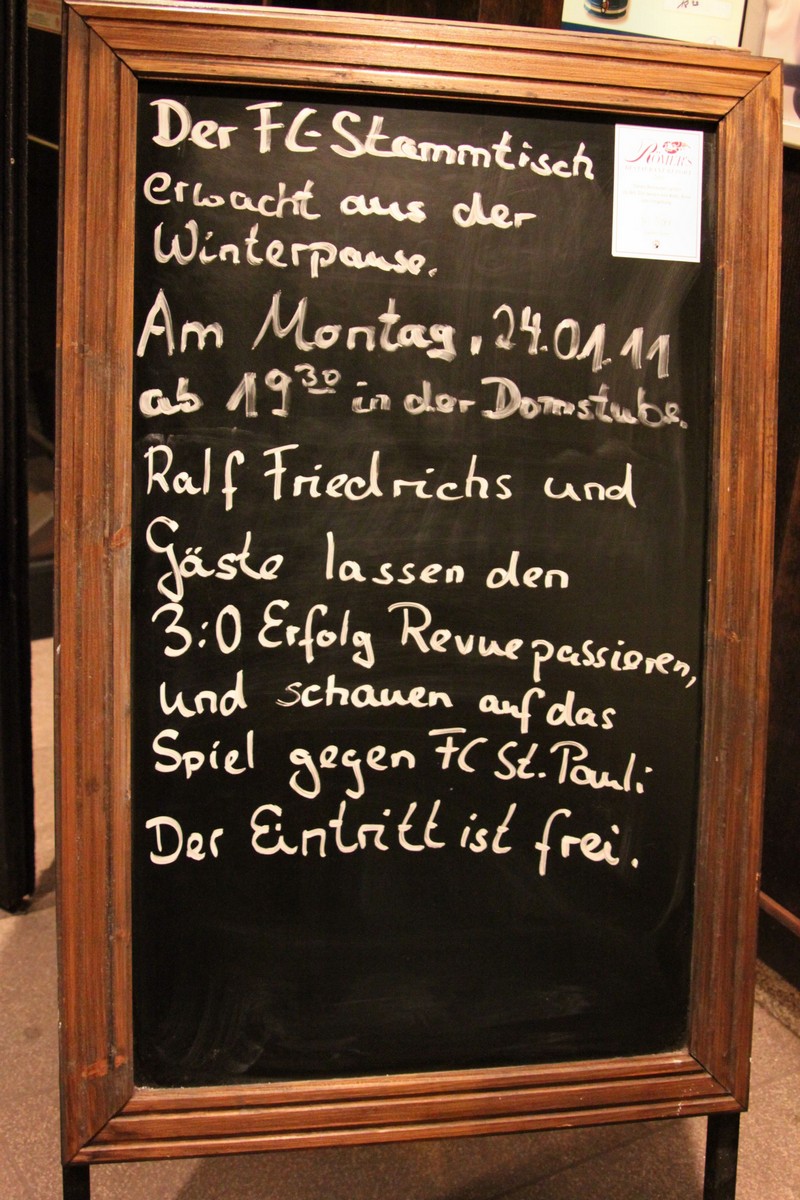 Der FC-Stammtisch
erwacht aus der
Winterpause.
Am Montag, 24.01.11
ab 19³⁰ in der Domstube.
Ralf Friedrichs und
Gäste lassen den
3:0 Erfolg Revue passieren,
und schauen auf das
Spiel gegen FC St. Pauli
Der Eintritt ist frei.
RÖMER'S